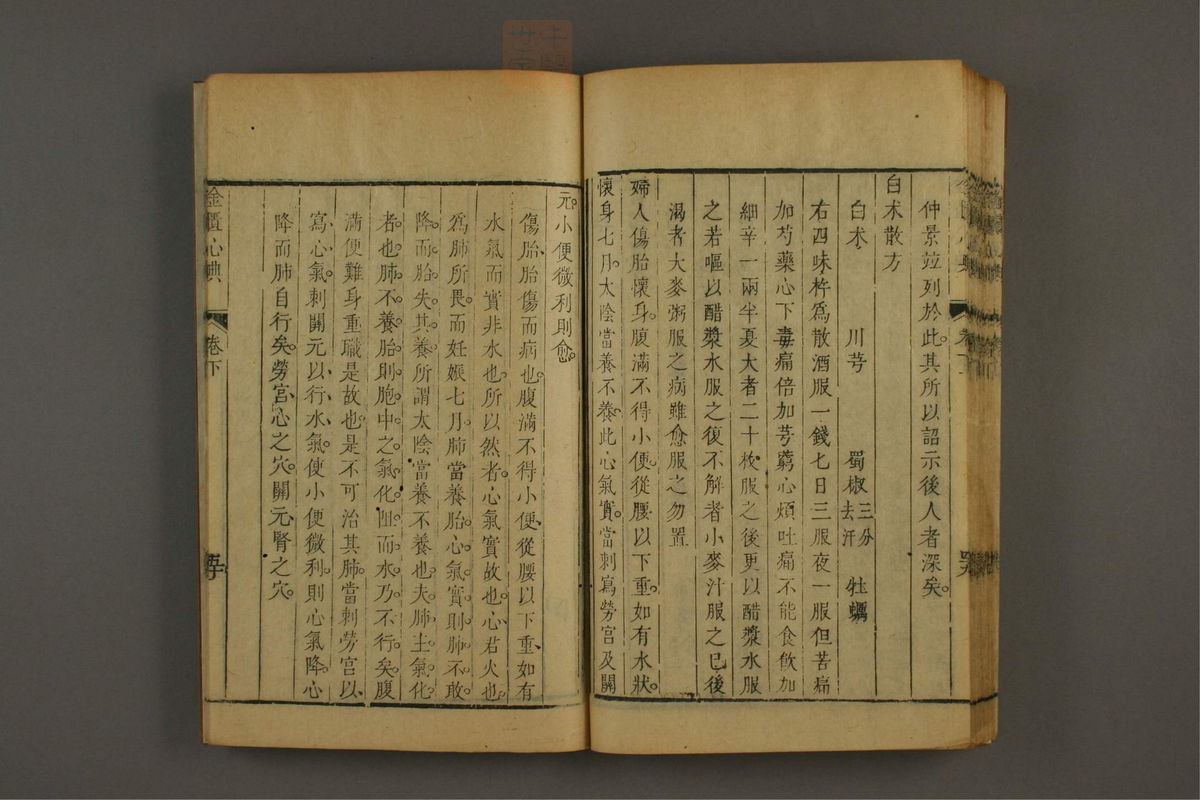 仲景竝列於此。其所以詔示後人者深矣。
白朮散方
白朮 川芎 蜀椒三分去汗 牡蠣
右四味杵爲散酒服一錢匕日三服夜一服但苦痛
加芍藥心下毒痛倍加芎藭心煩吐痛不能食飲加
細辛一兩半夏大者二十枚服之後更以醋漿水服
之若嘔以醋漿水服之復不解者小麥汁服之已後
渴者大麥粥服之病雖愈服之勿置
婦人傷胎懷身。腹滿不得小便。從腰以下重。如有水狀。
懷身七月。太陰當養不養。此心氣實。當刺瀉勞宮及關
元。小便微利則愈。
傷胎胎傷而病也。腹滿不得小便、從腰以下重、如有
水氣而實非水也。所以然者。心氣實故也。心君火也。
爲肺所畏。而妊娠七月。肺當養胎。心氣實則肺不敢
降。而胎失其養。所謂太陰當養不養也。夫肺主氣化
者也。肺不養胎。則胞中之氣化阻。而水乃不行矣。腹
滿便難身重職是故也。是不可治其肺。當刺勞宮以
寫心氣。刺關元以行水氣。使小便微利。則心氣降。心
降而肺自行矣。勞宮心之穴。關元腎之穴。
金匱心典 卷下